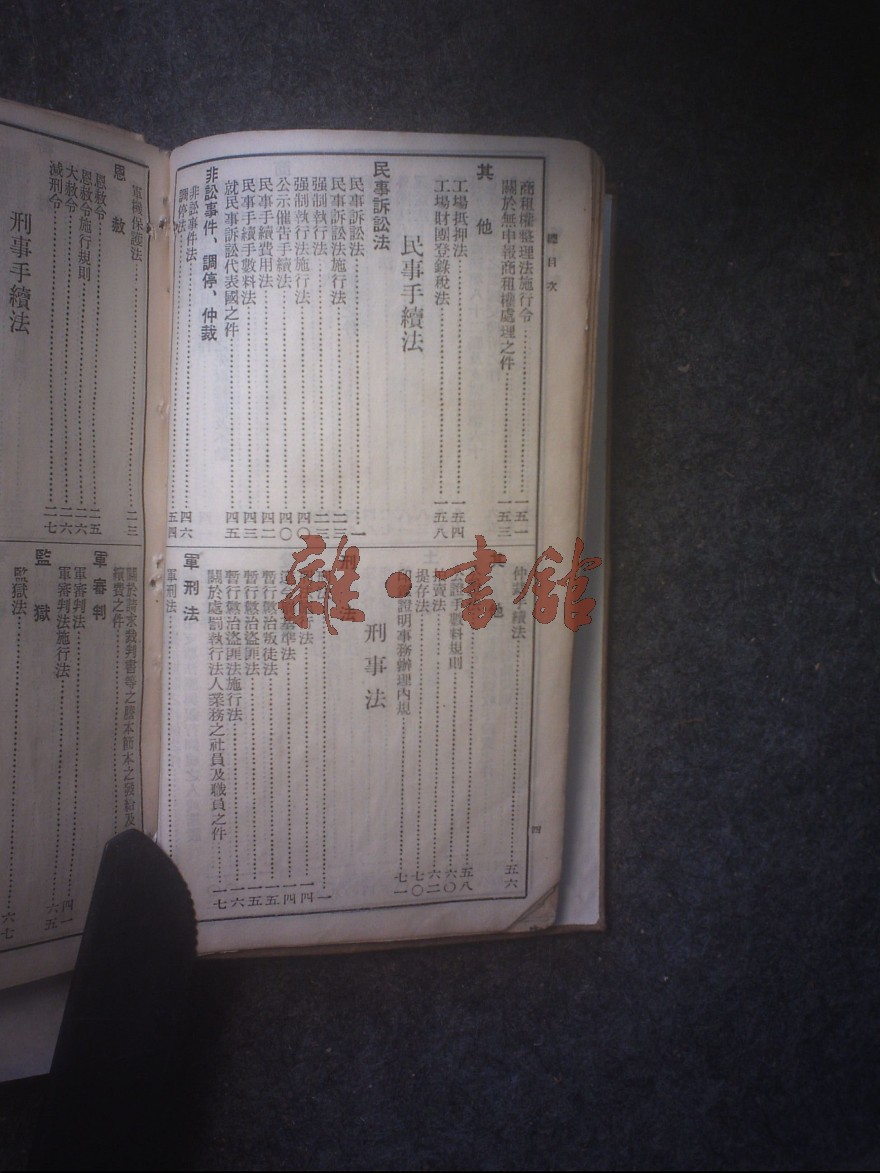 總目次
商租權整理法施行令 一五一
關於無申報商租權處理之件 一五三
其他
工場抵押法 一五四
工場財團登錄稅法 一五八
民事手續法
民事訴訟法
民事訴訟法 一
民事訴訟法施行法 二三
强制執行法 二三
强制執行法施行法 四〇
公示催告手續法 四〇
民事手續費用法 四二
民事手續手數料法 四三
就民事訴訟代表國之件 四五
非訟事件、調停、仲裁
非訟事件法 四六
調停法 五四
仲裁手續法 五六
其他
公證手數料規則 五八
六〇
拍賣法 六二
提存法 七〇
印鑑證明事務辦理內規 七一
刑事法
刑法
一
一四
暫行懲治叛徒法 一五
暫行懲治盜匪法 一五
暫行懲治盜匪法施行法 一六
關於處罰執行法人業務之社員及職員之件 一七
軍刑法
軍刑法
軍機保護法 二三
恩赦
恩赦令 二五
恩赦令施行規則 二六
大赦令 二六
減刑令 二七
刑事手續法
關於請求裁判書等之謄本節本之發給及
續費之件
軍審判
軍審判法 四一
軍審判法施行法 六五
監獄
監獄法 六七
四
雜·書館